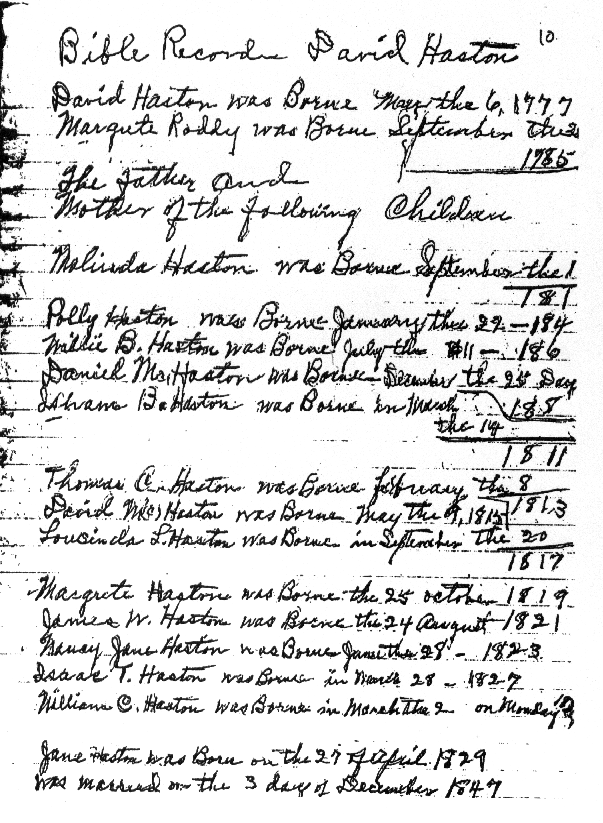 10
Bible Record David Haston
David Haston was Borne May the 6, 1777
Margrete Roddy was Borne September the 2
1785
The Father and
Mother of the following Children
Malinda Haston was Borne September the 1
181
Polly Haston was Borne January the 22 - 184
Willie B. Haston was Borne July the 11 - 186
Daniel Mc Haston was Borne December the 25 Day
188
Isham B. Haston was Borne in March
the 14
1811
Thomas C. Haston was Borne february the 8
1813
David Mc Haston was Borne May the 9, 1815
Loucinda L. Haston was Borne in September the 20
1817
Margrete Haston was Borne the 25 october 1819
James W. Haston was Borne the 24 August 1821
Nancy Jane Haston was Borne the 28 - 1823
Isaac T. Haston was Borne in March 28 - 1827
William C. Haston was Borne in March the 2 on Monday
Jane Haston was Born on the 27 of April 1829
was married on the 3 day of December 1847